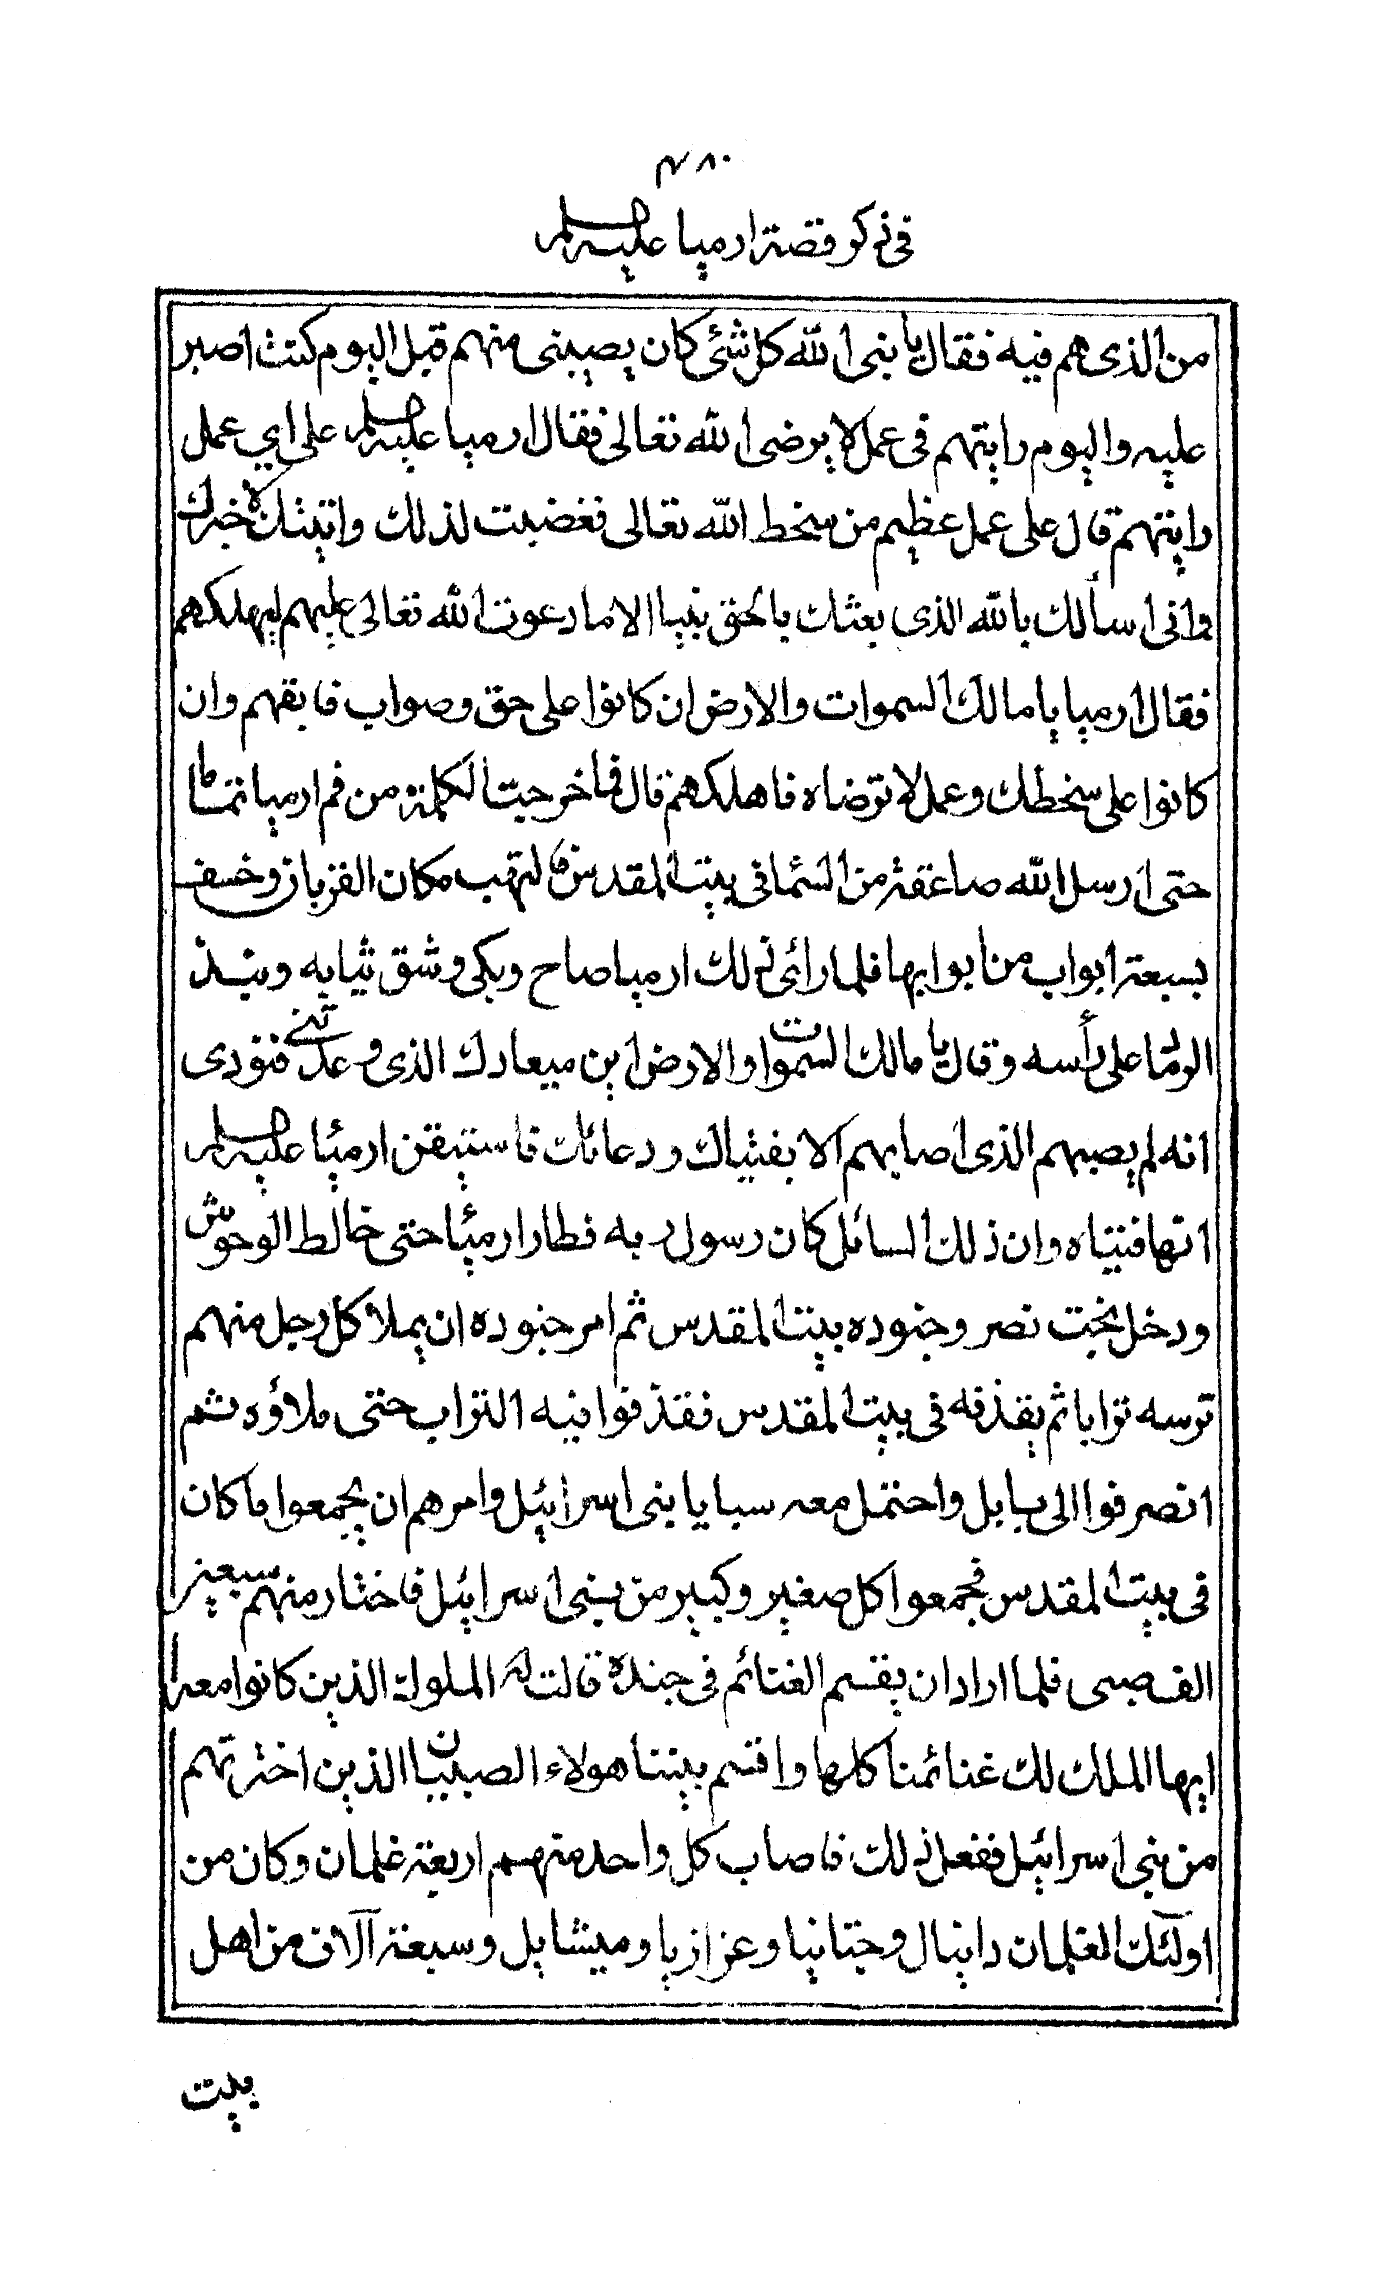 ٤٨٠
في ذكر قصة ارميا عليه السلم
من الذى هم فيه فقال يا نبى الله كل شئ كان يصيبنى منهم قبل اليوم كنت اصبر
عليه واليوم رايتهم فى عمل لا يرضى الله تعالى فقال ارميا عليه السلم على اي عمل
رايتهم قال على عمل عظيم من سخط الله تعالى فغضبت لذلك واتيتك لاخبرك
وانى اسألك بالله الذى بعثك بالحق نبيا الا ما دعوت الله تعالى عليهم ليهلكهم
فقال ارميا يا مالك السموات والارض ان كانوا على حق وصواب فابقهم وان
كانوا على سخطك وعمل لا ترضاه فاهلكهم قال فما خرجت الكلمة من فم ارميا تماما
حتى ارسل الله صاعقة من السما فى بيت المقدس فالتهب مكان القربان وخسف
بسبعة ابواب من ابوابها فلما رائ ذلك ارميا صاح وبكى وشق ثيابه ونبذ
الرماد على رأسه وقال يا مالك السموات والارض اين ميعادك الذى وعدتنى فنودى
انه لم يصبهم الذى اصابهم الا بفتياك ودعائك فاستيقن ارميا عليه السلم
انها فتياه وان ذلك السائل كان رسول ربه فطار ارميا حتى خالط الوحوش
ودخل بخت نصر وجنوده بيت المقدس ثم امر جنوده ان يملا كل رجل منهم
ترسه ترابا ثم يقذفه فى بيت المقدس فقذفوا فيه التراب حتى ملاؤه ثم
انصرفوا الى بابل واحتمل معه سبايا بنى اسرائيل وامرهم ان يجمعوا ما كان
فى بيت المقدس فجمعوا كل صغير وكبير من بنى اسرائيل فاختار منهم سبعين
الف صبى فلما اراد ان يقسم الغنائم فى جنده قالت له الملوك الذين كانوا معه
ايها الملك لك غنائمنا كلها واقسم بيننا هولاء الصبيان الذين اخترتهم
من بنى اسرائيل ففعل ذلك فاصاب كل واحد منهم اربعة غلمان وكان من
اولئك الغلمان دانيال وحنانيا وعزازيا وميشايل وسبعة آلاف من اهل
بيت